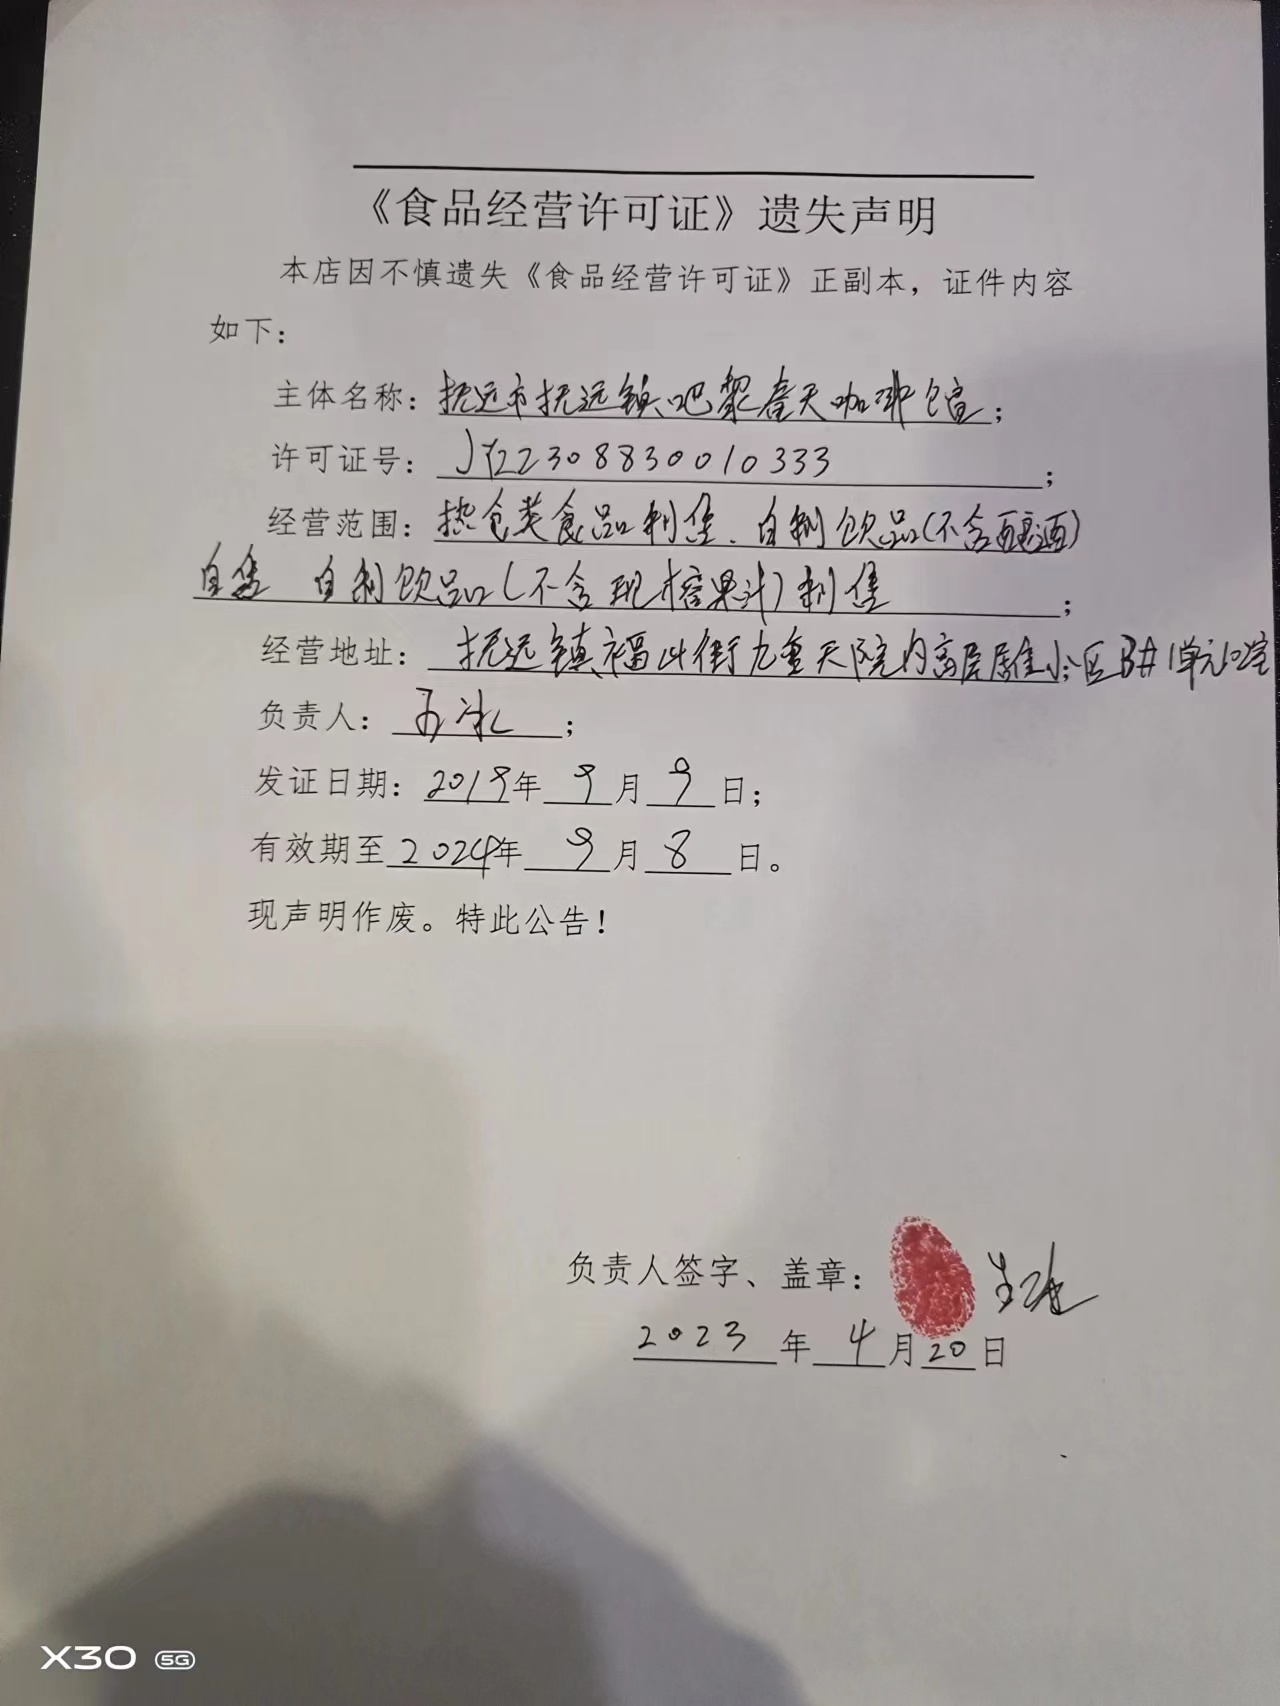 《食品经营许可证》遗失声明
本店因不慎遗失《食品经营许可证》正副本，证件内容
如下：
主体名称：抚远市抚远镇吧黎春天咖啡馆；
许可证号：JY22308830010333；
经营范围：热食类食品制售、自制饮品（不含自酿酒）
自制饮品（不含现榨果汁）制售；
经营地址：抚远镇福山街九重天院内高层居住小区B#1单元102室
负责人：；
发证日期：2019年9月9日；
有效期至2024年9月8日。
现声明作废。特此公告！
负责人签字、盖章：
2023年4月20日
X30 5G